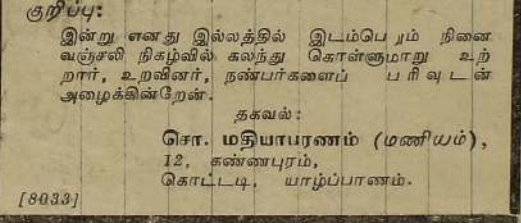 குறிப்பு:
இன்று எனது இல்லத்தில் இடம்பெறும் நினை
வஞ்சலி நிகழ்வில் கலந்து கொள்ளுமாறு உற்
றார், உறவினர், நண்பர்களைப் பரிவுடன்
அழைக்கின்றேன்.
தகவல்:
சொ. மதியாபரணம் (மணியம்),
12, கண்ணபுரம்,
கொட்டடி, யாழ்ப்பாணம்.
[8033]